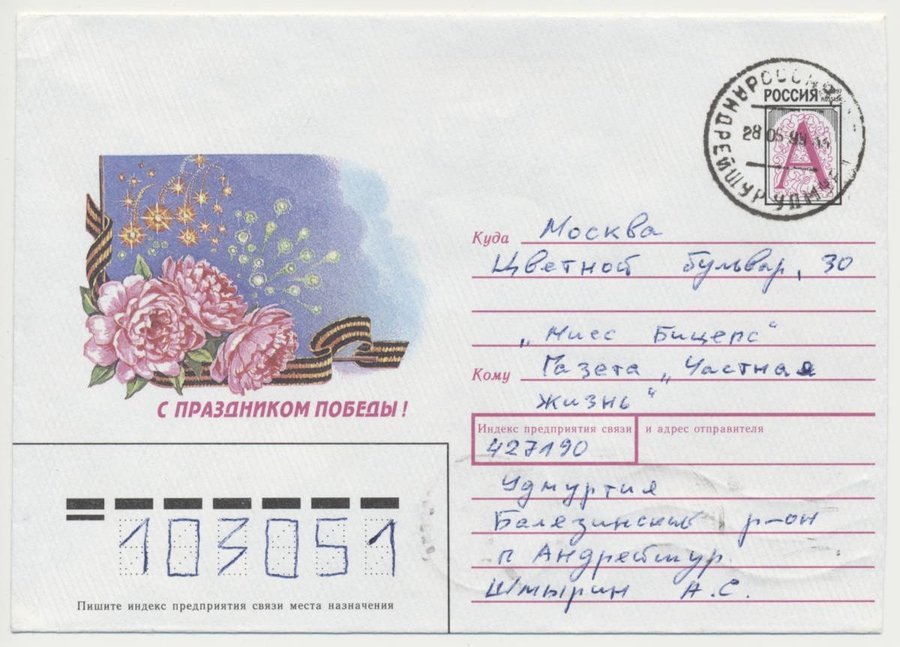 РОССИЯ
А
28 05 99
АНДРЕЙШУР УДМУРТ
Куда Москва
Цветной бульвар, 30
„Мисс Бицерс“
Кому Газета „Частная
жизнь“
С ПРАЗДНИКОМ ПОБЕДЫ!
Индекс предприятия связи и адрес отправителя
427190
Удмуртия
Балезинский р-он
п Андрейшур
Шмырин А.С.
103051
Пишите индекс предприятия связи места назначения